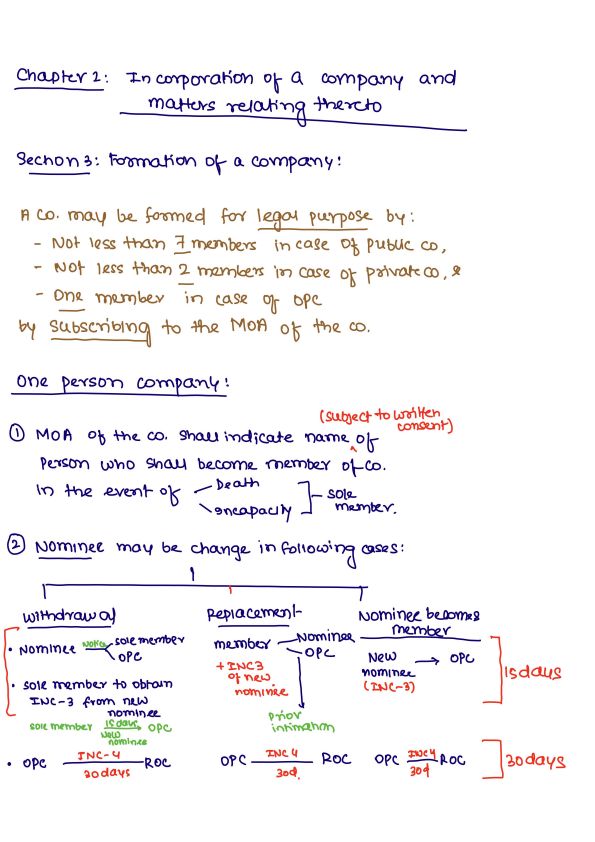 Chapter 2: Incorporation of a company and
matters relating thereto
Section 3: Formation of a company:
A co. may be formed for legal purpose by:
- Not less than 7 members in case of public co,
- Not less than 2 members in case of private co, &
- One member in case of OPC
by subscribing to the MOA of the co.
One person company:
(subject to written
consent)
① MOA of the co. shall indicate name of
person who shall become member of co.
in the event of Death
incapacity
sole
member.
② Nominee may be change in following cases:
withdrawal
• Nominee Notice sole member
OPC
• sole member to obtain
INC-3 from new
nominee
sole member 15 days OPC
New
nominee
• OPC INC-4 ROC
30 days
Replacement
member Nominee
OPC
+ INC3
of new
nominee
prior
intimation
OPC INC 4 ROC
30d.
Nominee becomes
member
New → OPC
nominee
(INC-3)
OPC INC 4 ROC
30d
15 days
30 days